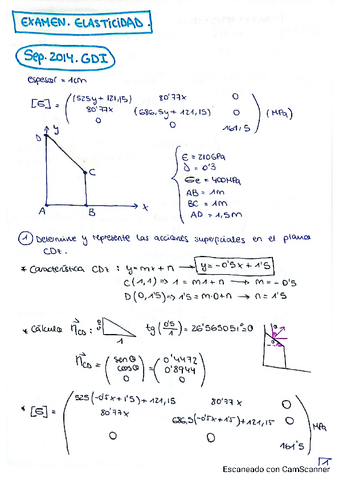 EXAMEN. ELASTICIDAD.
Sep. 2014. GDI
espesor = 1cm
[G] = ( (525y + 121,15) 80'77x 0
80'77x (686,5y + 121,15) 0
0 0 161,5 ) (MPa)
D y
C
A B x
E = 210GPa
ν = 0'3
σe = 400MPa
AB = 1m
BC = 1m
AD = 1,5m
① Determine y represente las acciones superficiales en el plano
CDt.
* Característica CDt : y = mx + n → y = -0'5x + 1'5
C (1,1) ⇒ 1 = m·1 + n → m = -0'5
D (0, 1'5) ⇒ 1'5 = m·0 + n → n = 1'5
* Cálculo n⃗CD : θ 1 tg (0'5/1) = 26'565051º
n⃗CD = (senθ cosθ 0) = (0'4472 0'8944 0)
* [G] = ( 525(-0'5x + 1'5) + 121,15 80'77x 0
80'77x 686,5(-0'5x + 1'5) + 121,15 0
0 0 161'5 ) MPa
1
Escaneado con CamScanner